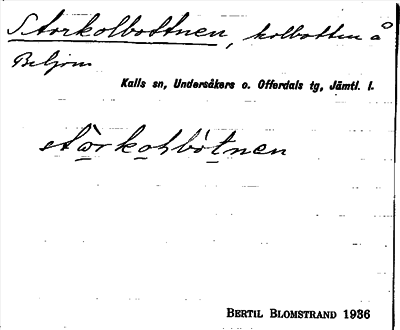 Storkolbottnen, kolbotten å
Beljom
Kalls sn, Undersåkers o. Offerdals tg, Jämtl. l.
BERTIL BLOMSTRAND 1936